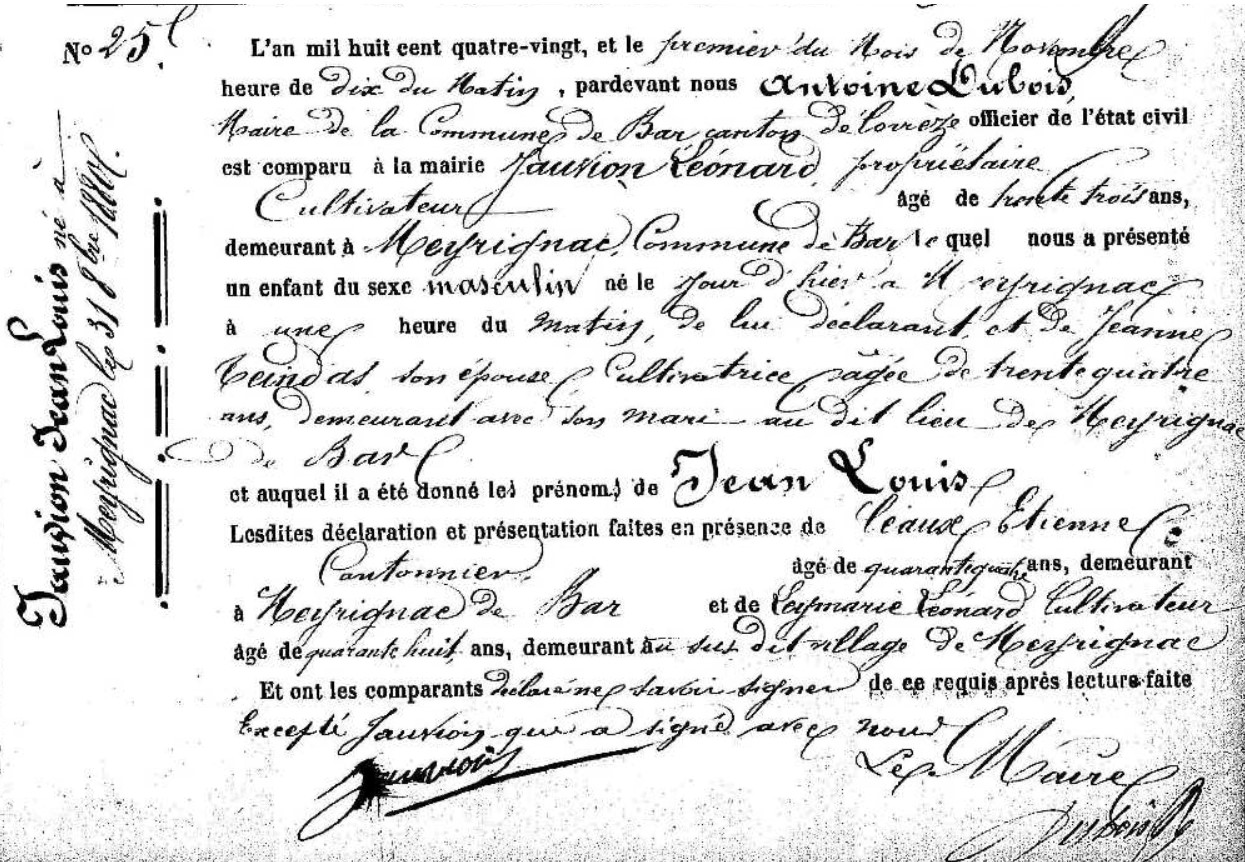 No 25.
Jauvion Jean Louis né à
Meyrignac le 31 8bre 1880.
L'an mil huit cent quatre-vingt, et le premier du Mois de Novembre
heure de dix du Matin, pardevant nous Antoine Dubois,
Maire de la Commune de Bar canton de Corrèze officier de l'état civil
est comparu à la mairie Jauvion Léonard, propriétaire
Cultivateur âgé de trente trois ans,
demeurant à Meyrignac, Commune de Bar lequel nous a présenté
un enfant du sexe masculin né le jour d'hier a Meyrignac
à une heure du matin, de lui déclarant, et de Jeanne
son épouse Cultivatrice âgée de trente quatre
ans, demeurant avec son mari au dit lieu de Meyrignac
de Bar
et auquel il a été donné les prénoms de Jean Louis
Lesdites déclaration et présentation faites en présence de Etienne
Cantonnier, âgé de quarante quatre ans, demeurant
à Meyrignac de Bar et de Leymarie Léonard Cultivateur
âgé de quarante huit ans, demeurant au sus dit village de Meyrignac
Et ont les comparants déclaré ne savoir signer de ce requis après lecture faite
Excepté Jauvion qui a signé avec nous
Jauvion
Le Maire
Dubois